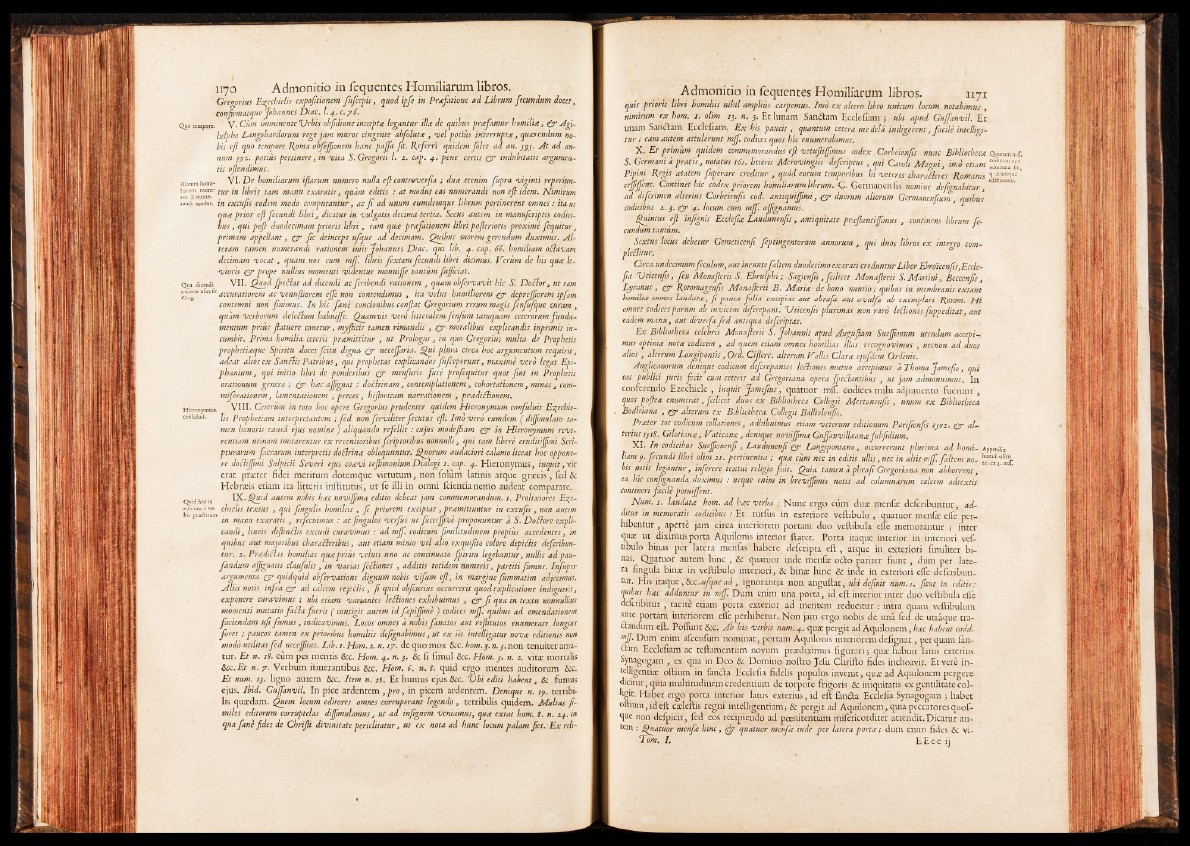 1170 Admonitio in sequentes Homiliarum libros.
Gregorius Ezechielis expositionem suscepit, quod ipse in Præfatione ad Librum secundum docet,
confirmatque Johannes Diac. l. 4. c. 76.
Quo tempore.
V. Cùm imminente Urbis obsidione inceptæ legantur illæ de quibus præfamur homiliæ, & Agi-
lulpho Langobardorum rege jam muros cingente absolutæ, vel potiùs interruptæ, quærendum no-
bis est quo tempore Roma obsessionem hanc passa sit. Referri quidem solet ad an. 595. At ad an-
num 592. potiùs pertinere, in vita S. Gregorii l. 2. cap. 4. pene certis & indubitatis argumen-
tis ostendimus.
VI. De homiliarum illarum numero nulla est controversia; duæ etenim supra viginti reperiun-
tur in libris tam manu exaratis, quàm editis: at modus eas numerandi non est idem. Nimirum
in excusis eodem modo computantur, ac si ad unum eumdemque librum pertinerent omnes: ita ut
quæ prior est secundi libri, dicatur in vulgatis decima tertia. Secus autem in manuscriptis codici-
bus, qui post duodecimam prioris libri, eam quæ præfationem libri posterioris proximè sequitur,
primam appellant, & sic deinceps usque ad decimam. Quibus morem gerendum duximus. Al-
teram tamen numerandi rationem iniit Johannes Diac. qui lib. 4. cap. 66. homiliam octavam
decimam vocat, quam nos cum mss. libris sextam secundi libri dicimus. Verùm de his quæ le-
vioris & prope nullius momenti videntur monuisse tantùm sufficiat.
VII. Quod spectat ad dicendi ac scribendi rationem, quam observavit hic S. Doctor, ut eam
accuratiorem ac venustiorem esse non contendimus, ita velut humiliorem & depressiorem ipsam
contemni non sinimus. In hic sanè concionibus constat Gregorium rerum magis sensusque curam,
quàm verborum delectum habuisse. Quamvis verò litteralem sensum tamquam ceterorum funda-
mentum priùs statuere conetur, mysticis tamen rimandis, & moralibus explicandis inprimis in-
cumbit. Prima homilia ceteris præmittitur, ut Prologus, in quo Gregorius multa de Prophetis
prophetiæque Spiritu docet scitu digna & necessaria. Qui plura circa hoc argumentum requirit,
adeat alios ex Sanctis Patribus, qui prophetas explicandos susceperunt, maximè verò legat Epi-
phanium, qui initio libri de ponderibus & mensuris fusè prosequitur quot sint in Prophetis
orationum genera; & hæc assignat: doctrinam, contemplationem, cohortationem, minas, com-
miserationem, lamentationem, preces, historicam narrationem, prædictionem.
Hieronymum consulit.
VIII. Ceterùm in toto hoc opere Gregorius prudenter quidem Hieronymum consuluit Ezechie-
lis Prophetæ summum interpretem; sed non serviliter secutus est. Imò verò eumdem (dissimulato ta-
men honoris causâ ejus nomine) aliquando refellit: cujus modestiam & in Hieronymum reve-
rentiam utinam imitarentur ex recentioribus scriptoribus nonnulli, qui tam liberè eruditissimi Scri-
pturarum sacrarum interpretis doctrinæ obloquuntur. Quorum audaciori calamo liceat hoc oppone-
re doctissimi Sulpicii Severi ejus coævi testimonium Dialogi 1. cap. 4. Hieronymus, inquit, vir
erat præter fidei meritum dotemque virtutum, non solùm latinis atque græcis, sed &
Hebræis etiam ita litteris institutus, ut se illi in omni scientia nemo audeat comparare.
IX. Quid autem nobis hæc novissima editio debeat jam commemorandum. 1. Prolixiores Eze-
chielis textus, qui singulis homiliis, si priorem excipias, præmittuntur in excusis, non autem
in manu exaratis, resecuimus: at singulos versus ut successivè proponuntur à S. Doctore expli-
candi, lineis distinctis excudi curavimus: ad mss. codicum similitudinem propiùs accedentes, in
quibus aut majoribus characteribus, aut etiam minio vel alio exquisito colore depictis describun-
tur. 2. Prædictas homilias quæ prius veluti uno ac continuato spiritu legebantur, nullis ad pau-
sandum assignatis clausulis, in varias sectiones, additis totidem numeris, partiti sumus. Insuper
argumenta & quidquid observatione dignum nobis visum est, in margine summatim adjecimus.
Aliis notis infra & ad calcem rejectis, si quid obscurius occurrerit quod explicatione indigeret,
exponere curavimus; ubi etiam variantes lectiones exhibuimus, & si qua in textu nonnullius
momenti mutatio facta fuerit (contigit autem id sæpissimè) codices mss. quibus ad emendationem
faciendam usi sumus, indicavimus. Locos omnes à nobis sanatos aut restitutos enumerare longius
foret; paucos tamen ex prioribus homiliis designabimus, ut ex iis intelligatur novæ editionis non
modo utilitas sed necessitas. Lib. 1. Hom. 2. n. 17. de quo mox &c. hom. 3. n. 3. non tenuiter ama-
tur. Et n. 18. cùm pes mentis &c. Hom. 4. n. 3. & si simul &c. Hom. 5. n. 2. vitæ mortalis
&c. Et n. 7. Verbum itinerantibus &c. Hom. 6. n. 8. quid ergo mentes auditorum &c.
Et num. 13. ligno autem &c. Item n. 18. Et humus ejus &c. Ubi editi habent, & fumus
ejus. Ibid. Gussanvil. In pice ardentem, pro, in picem ardentem. Denique n. 19. terribi-
lis quædam. Quem locum editores omnes corruperant legendo, terribilis quidem. Multas si-
miles editorum corruptelas dissimulamus, ut ad insignem veniamus, quæ extat hom. 8. n. 24. in
qua sanè fides de Christi divinitate periclitatur, ut ex nota ad hunc locum palam fiet. Ex reli-
Admonitio in sequentes Homiliarum libros. 1171
quis prioris libri homiliis nihil ampliùs carpemus. Imò ex altero libro unicum locum notabimus,
nimirum ex hom. 1. olim 13. n. 3. Et lunam Sanctam Ecclesiam; ubi apud Gussanvil. Et
unam Sanctam Ecclesiam. Ex his paucis, quantum cetera medelâ indigerent, facilè intelligi-
tur; eam autem attulerunt mss. codices quos hic enumerabimus.
X. Et primùm quidem commemorandus est vetustissimus codex Corbeiensis nunc Bibliothecæ
S. Germani à pratis, notatus 161. litteris Merovingiis descriptus; qui Caroli Magni, imò etiam
Pipini Regis ætatem superare creditur, quòd eorum temporibus hi veteris characteres Romanis
cessissent. Continet hic codex priorem homiliarum librum. C. Germanensis nomine designabitur,
ad discrimen alterius Corbeiensis cod. antiquissimi, & duorum aliorum Germanensium, quibus
codicibus 2. 3. & 4. locum cum mss. assignamus.
Quintus est insignis Ecclesiæ Laudunensis, antiquitate præstantissimus, continens librum se-
cundum tantùm.
Sextus locus debetur Gemeticensi septingentorum annorum, qui duos libros ex integro com-
plectitur.
Circa undecimum seculum, aut ineunte saltem duodecimo exarati creduntur Liber Ebroicensis, Eccle-
siæ Uticensis, seu Monasterii S. Ebrulphi; Sagiensis, scilicet Monasterii S. Martini, Beccensis,
Lyranus, & Rotomagensis Monasterii B. Mariæ de bono nuntio; quibus in membranis extant
homiliæ omnes laudatæ, si pauca folia excipias aut abrasa aut avulsa ab exemplari Rotom. Hi
omnes codices parum ab invicem discrepant. Uticensis plurimas non rarò lectiones suppeditat, aut
eadem manu, aut diversa sed antiqua descriptas.
Ex Bibliotheca celebris Monasterii S. Johannis apud Augustam Suessionum utendum accepi-
mus optimæ notæ codicem, ad quem etiam omnes homilias illas recognovimus, necnon ad duos
alios, alterum Longipontis, Ord. Cisterc. alterum Vallis Claræ ejusdem Ordinis.
Anglicanorum denique codicum discrepantes lectiones mutuò accepimus à Thoma Jamesio, qui
eas publici juris fecit cum ceteris ad Gregoriana opera spectantibus, ut jam admonuimus. In
conferendo Ezechiele, inquit Jamesius, quatuor mss. codices mihi adjumento fuerunt,
quos postea enumerat, scilicet duos ex Bibliotheca Collegii Mertonensis, unum ex Bibliotheca
Bodleiana, & alterum ex Bibliotheca Collegii Balliolensis.
Præter tot codicum collationes, adhibuimus etiam veterum editionum Parisiensis 1502. & al-
terius 1518. Gilotianæ, Vaticanæ, denique novissimæ Gussanvillæanæ subsidium.
XI. In codicibus Suessionensi, Laudunensi & Longipontano, occurrerunt plurima ad homi-
liam 9. secundi libri olim 21. pertinentia; quæ cùm nec in editis ullis, nec in aliis mss. saltem no-
bis notis legantur, inserere textui religio fuit. Quia tamen à phrasi Gregoriana non abhorrent,
ea hic consignanda duximus: neque enim in brevissimis notis ad columnarum calcem adtextis
contineri facilè potuissent.
Num. 1. laudatæ hom. ad hæc verba: Nunc ergo cùm duæ mensæ describuntur, ad-
ditur in memoratis codicibus: Et rursus in exteriore vestibulo, quatuor mensæ esse per-
hibentur, apertè jam circa interiorem portam duo vestibula esse memorantur; inter
quæ ut diximus porta Aquilonis interior staret. Porta itaque interior in interiori ves-
tibulo binas per latera mensas habere descripta est, atque in exteriori similiter bi-
nas. Quatuor autem hinc, & quatuor inde mensæ octo pariter fiunt, dum per late-
ra singula binæ in vestibulo interiori, & binæ hinc & inde in exteriori esse describun-
tur. His itaque, &c. usque ad, ignorantia non angustat, ubi desinit num. 1. sicut in editis:
quibus hæc adduntur in mss. Dum enim una porta, id est interior inter duo vestibula esse
describitur, tacitè etiam porta exterior ad mentem reducitur: intra quam vestibulum
ante portam interiorem esse perhibetur. Non jam ergo nobis de una sed de utraque tra-
ctandum est. Possunt &c. Ab his verbis num. 4. quæ pergit ad Aquilonem, hæc habent codd.
mss. Dum enim ascensum nominat, portam Aquilonis interiorem designat, per quam san-
ctam Ecclesiam ac testamentum novum prædiximus figurari; quæ habuit latus exterius
Synagogam, ex qua in Deo & Domino nostro Jesu Christo fides inchoavit. Et verè in-
telligentiæ ostium in sancta Ecclesia fidelis populus invenit, quæ ad Aquilonem pergere
dicitur, quia multitudinem credentium de torpore frigoris & iniquitatis ex gentilitate col-
ligit. Habet ergo porta interior latus exterius, id est sancta Ecclesia Synagogam; habet
ostium, id est cælestis regni intelligentiam; & pergit ad Aquilonem, quia peccatores quos-
que non despicit, sed eos recipiendo ad pœnitentiam misericorditer attendit. Dicatur au-
tem: Quatuor mensæ hinc, & quatuor mensæ inde per latera portæ: dum enim fides & vi-
Tom. I. EEee ij